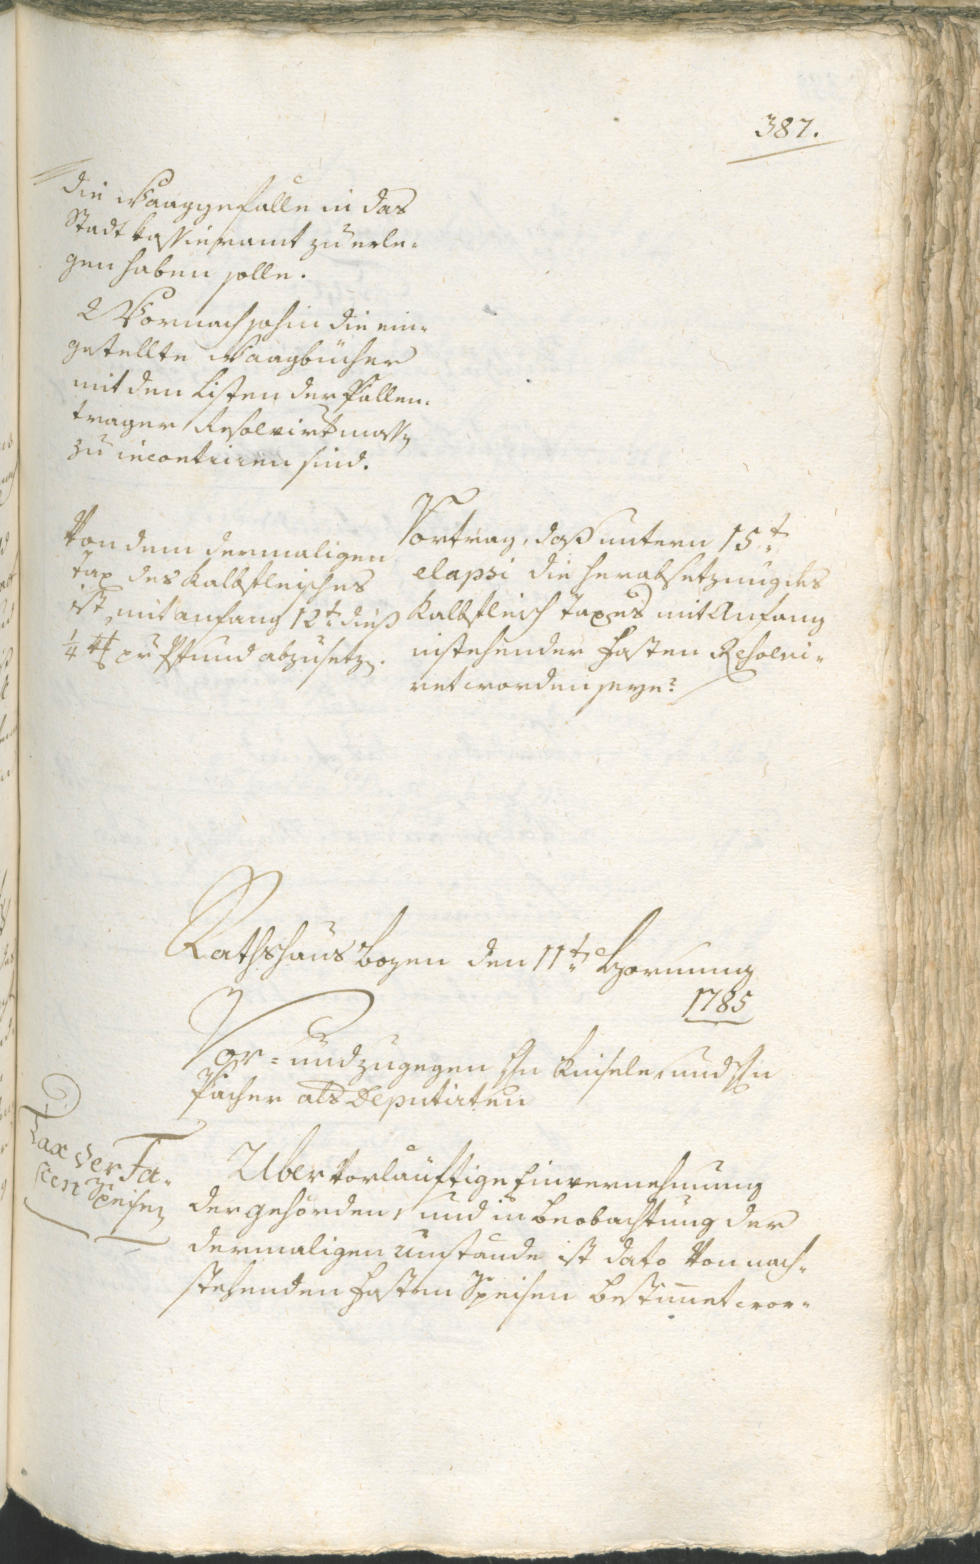 387.
die Waaggefälle in das
Stadt kassieramt zu erle-
gen haben solle.
2 Wornach sohin die ein-
gestellte Waagbücher
mit den Listen der Pallen-
trager Resolvirtmassen
zu incontriren sind.
Von dem dermaligen
tax des Kalbfleisches
ist mit anfang 12t diess
1/4 xr Pfund abzusetzen.
Vortrag, dass untern 15t
elapsi die herabsetzung des
Kalbfleisch taxes mit Anfang
instehender Fasten Resolvi-
ret worden seye?
Rathshaus Bozen den 11t Hornung
1785
Vor- und zugegen Hn Kinsele, und Hn
Pacher als Deputirten
Tax der Fa-
sten Speisen
Uber Vorläuftige Einvernehmung
der gehörden, und in beobachtung der
dermaligen umstände ist dato Von nach-
stehenden Fasten Speisen bestimmet wor-